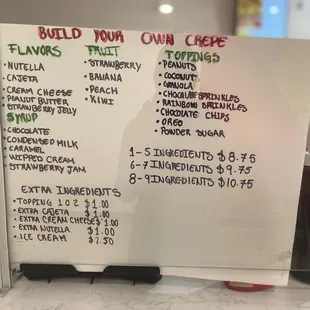 BUILD YOUR OWN CREPE
FLAVORS
- NUTELLA
- CAJETA
- CREAM CHEESE
- PEANUT BUTTER
- STRAWBERRY JELLY
SYRUP
- CHOCOLATE
- CONDENSED MILK
- CARAMEL
- WHIPPED CREAM
- STRAWBERRY JAM
FRUIT
- STRAWBERRY
- BANANA
- PEACH
- KIWI
TOPPINGS
- PEANUTS
- COCONUT
- GRANOLA
- CHOCOLATE SPRINKLES
- RAINBOW SPRINKLES
- CHOCOLATE CHIPS
- OREO
- POWDER SUGAR
1-5 INGREDIENTS $8.75
6-7 INGREDIENTS $9.75
8-9 INGREDIENTS $10.75
EXTRA INGREDIENTS
- TOPPING 1 O 2 $1.00
- EXTRA CAJETA $1.00
- EXTRA CREAM CHEESE $1.00
- EXTRA NUTELLA $1.00
- ICE CREAM $2.50